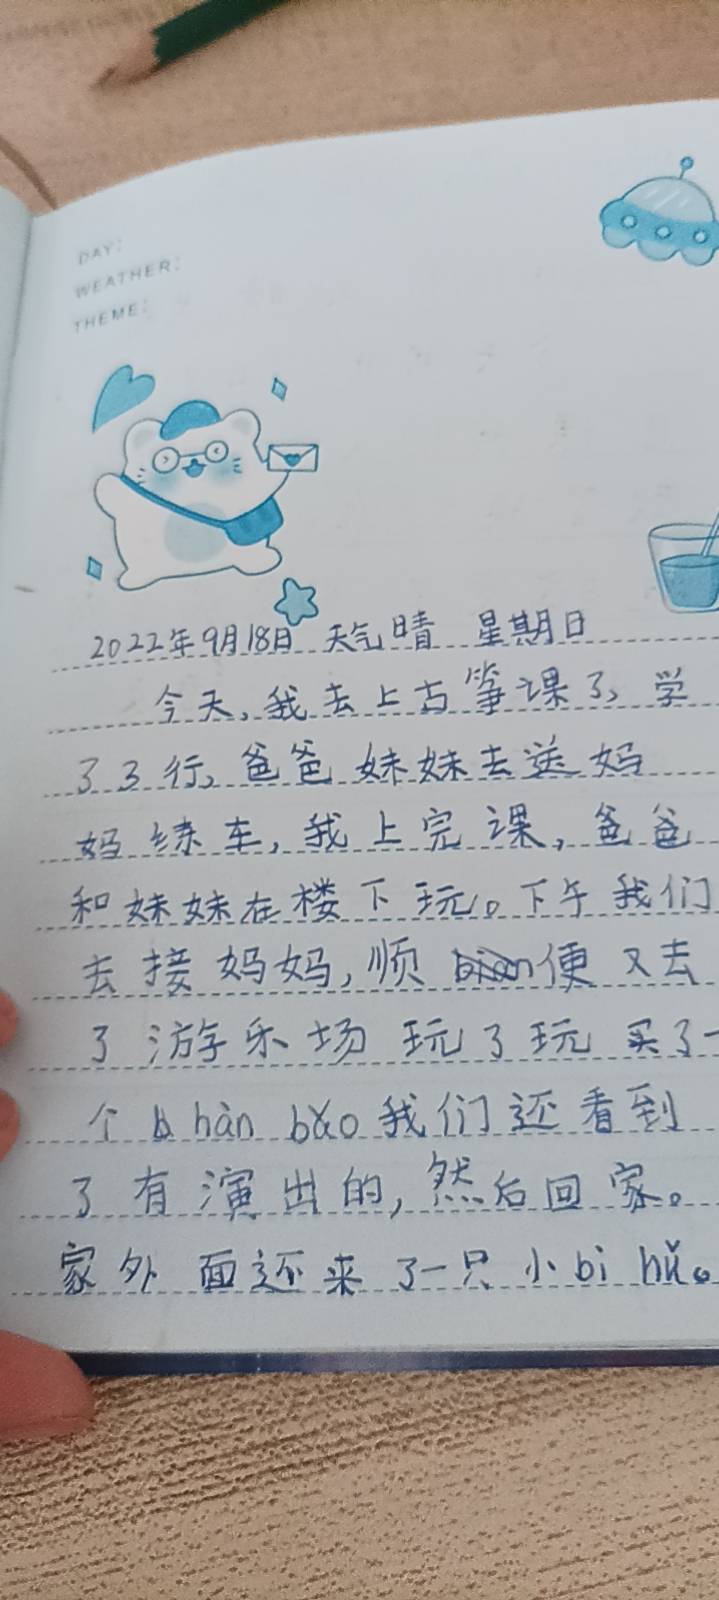 DAY:
WEATHER:
THEME:
2022年9月18日 天气晴 星期日
今天,我去上古筝课了,学
了3行,爸爸妹妹去送妈
妈练车,我上完课,爸爸
和妹妹在楼下玩。下午我们
去接妈妈,顺便又去
了游乐场玩了玩买了一
个hàn bǎo我们还看到
了有演出的,然后回家。
家外面还来了一只小bì hǔ。